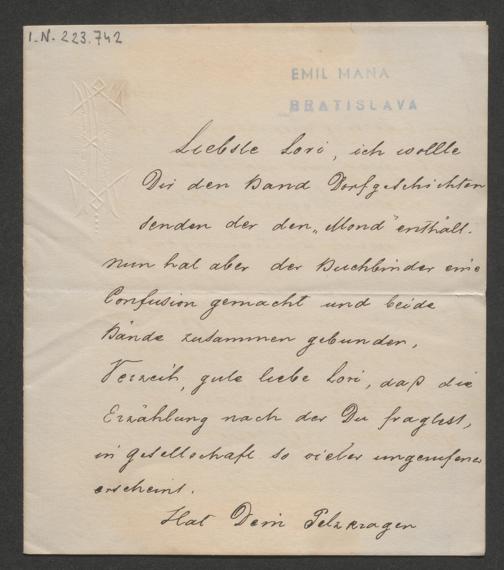 I.N. 223.742
EMIL MANA
BRATISLAVA
Liebste Lori, ich wollte
Dir den Band Dorfgeschichten
senden der den „Mond" enthält.
Nun hat aber der Buchbinder eine
Confusion gemacht und beide
Bände zusammen gebunden,
Verzeih, gute liebe Lori, daß die
Erzählung nach der Du fragtest,
in Gesellschaft so vieler ungerufener
erscheint.
Hat Dein Pelzkragen